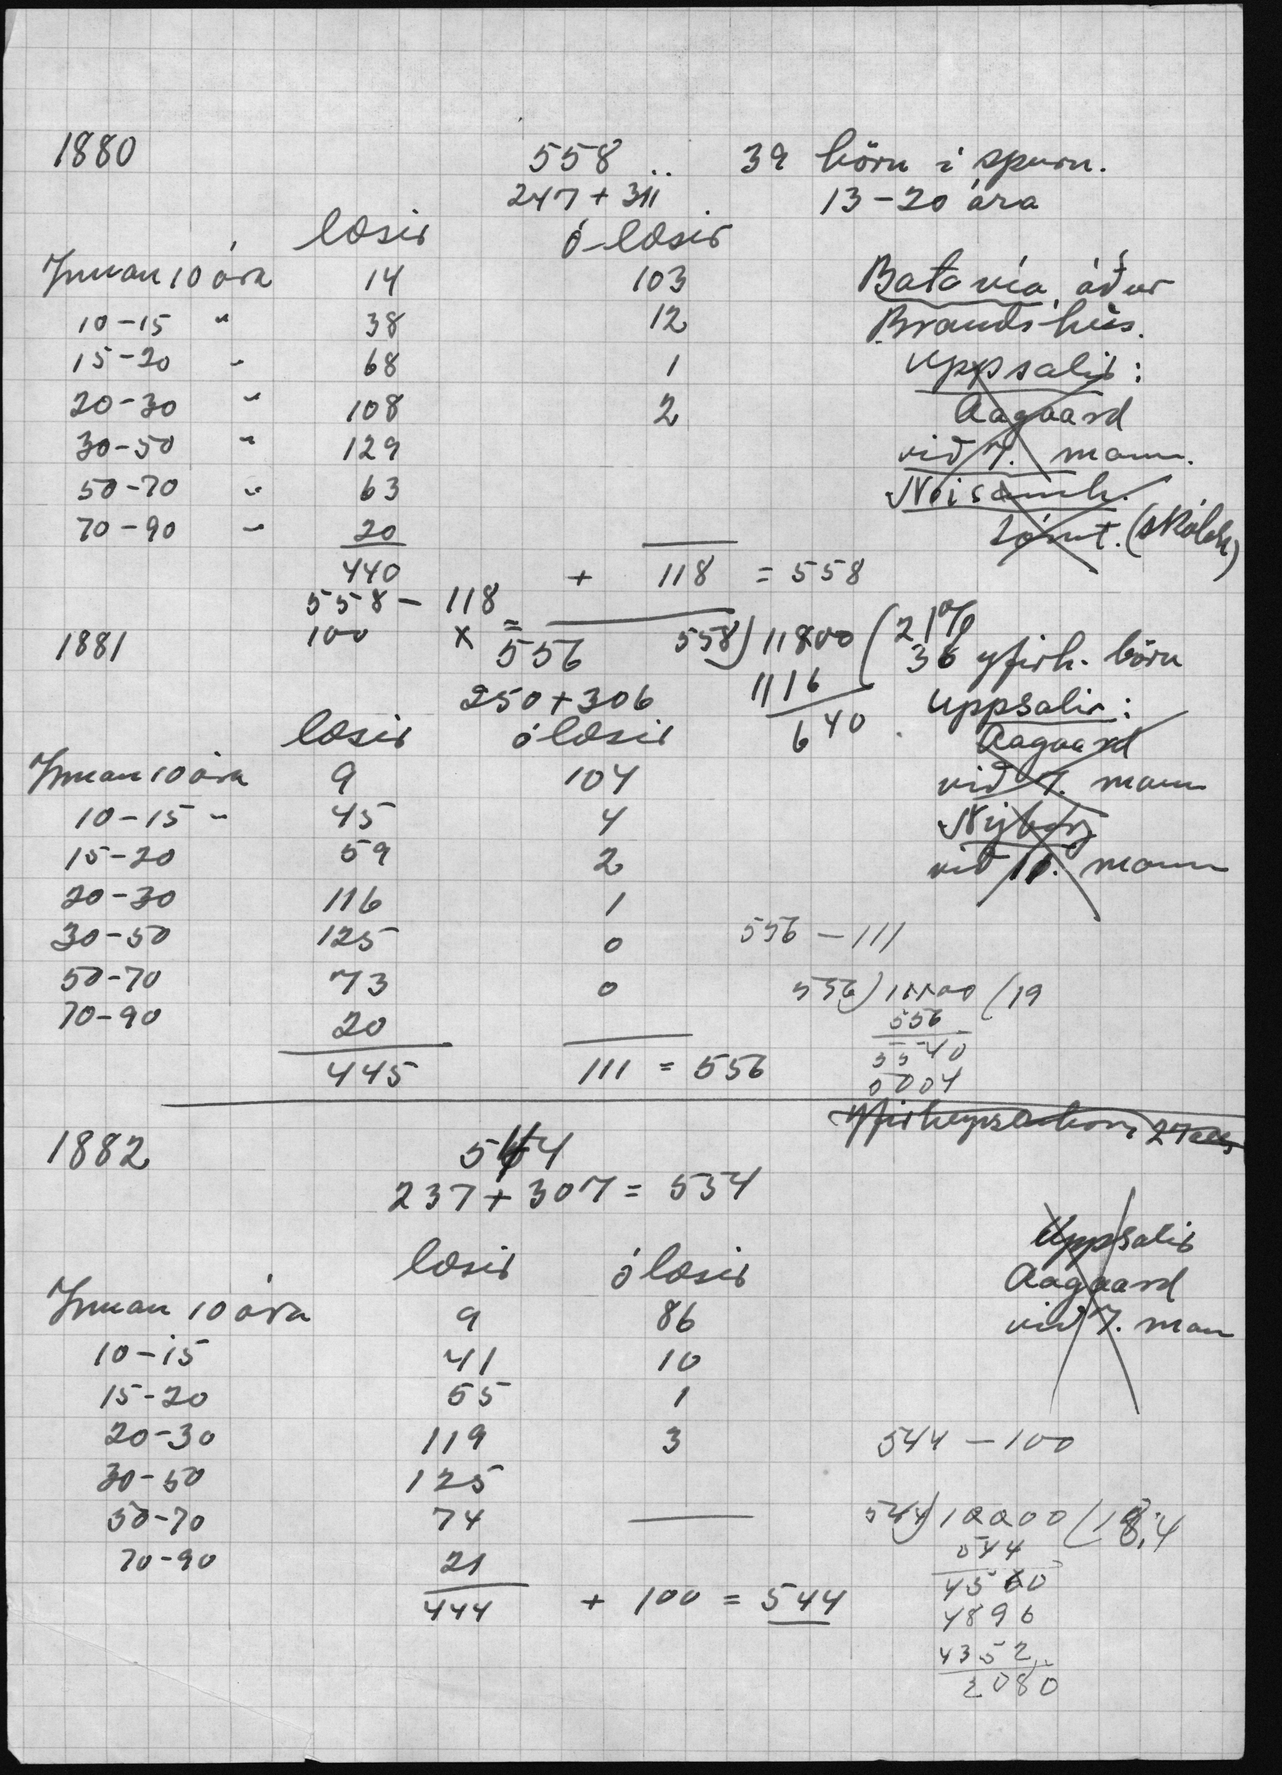 1880 558 39 börn i spurn.
247 + 311 13-20 ára
læsir ó-læsir
Innan 10 ára 14 103 Batavía áður
10-15 " 38 12 Brandshús.
15-20 " 68 1 Uppsalir:
20-30 " 108 2 Aagaard
30-50 " 129 við 7. mann.
50-70 " 63
70-90 " 20
440 + 118 = 558
558 - 118
100 x =
558) 11800 (21%
1881 556 36 yfirh. börn
1116
250 + 306 640 Uppsalir:
læsir ólæsir Aagaard
Innan 10 ára 9 104 við 7. mann
10-15 " 45 4 Nýborg
15-20 59 2 við 11. mann
20-30 116 1
30-50 125 0 556 - 111
50-70 73 0 556) 11100 (19
70-90 20 556
5540
445 111 = 556 5004
1882 544
237 + 307 = 534
Uppsalir
læsir ólæsir Aagaard
Innan 10 ára 9 86 við 7. man
10-15 41 10
15-20 55 1
20-30 119 3 544 - 100
30-50 125
50-70 74 544) 10000 (18,4
70-90 21 544
4560
444 + 100 = 544
4896
4352
2080